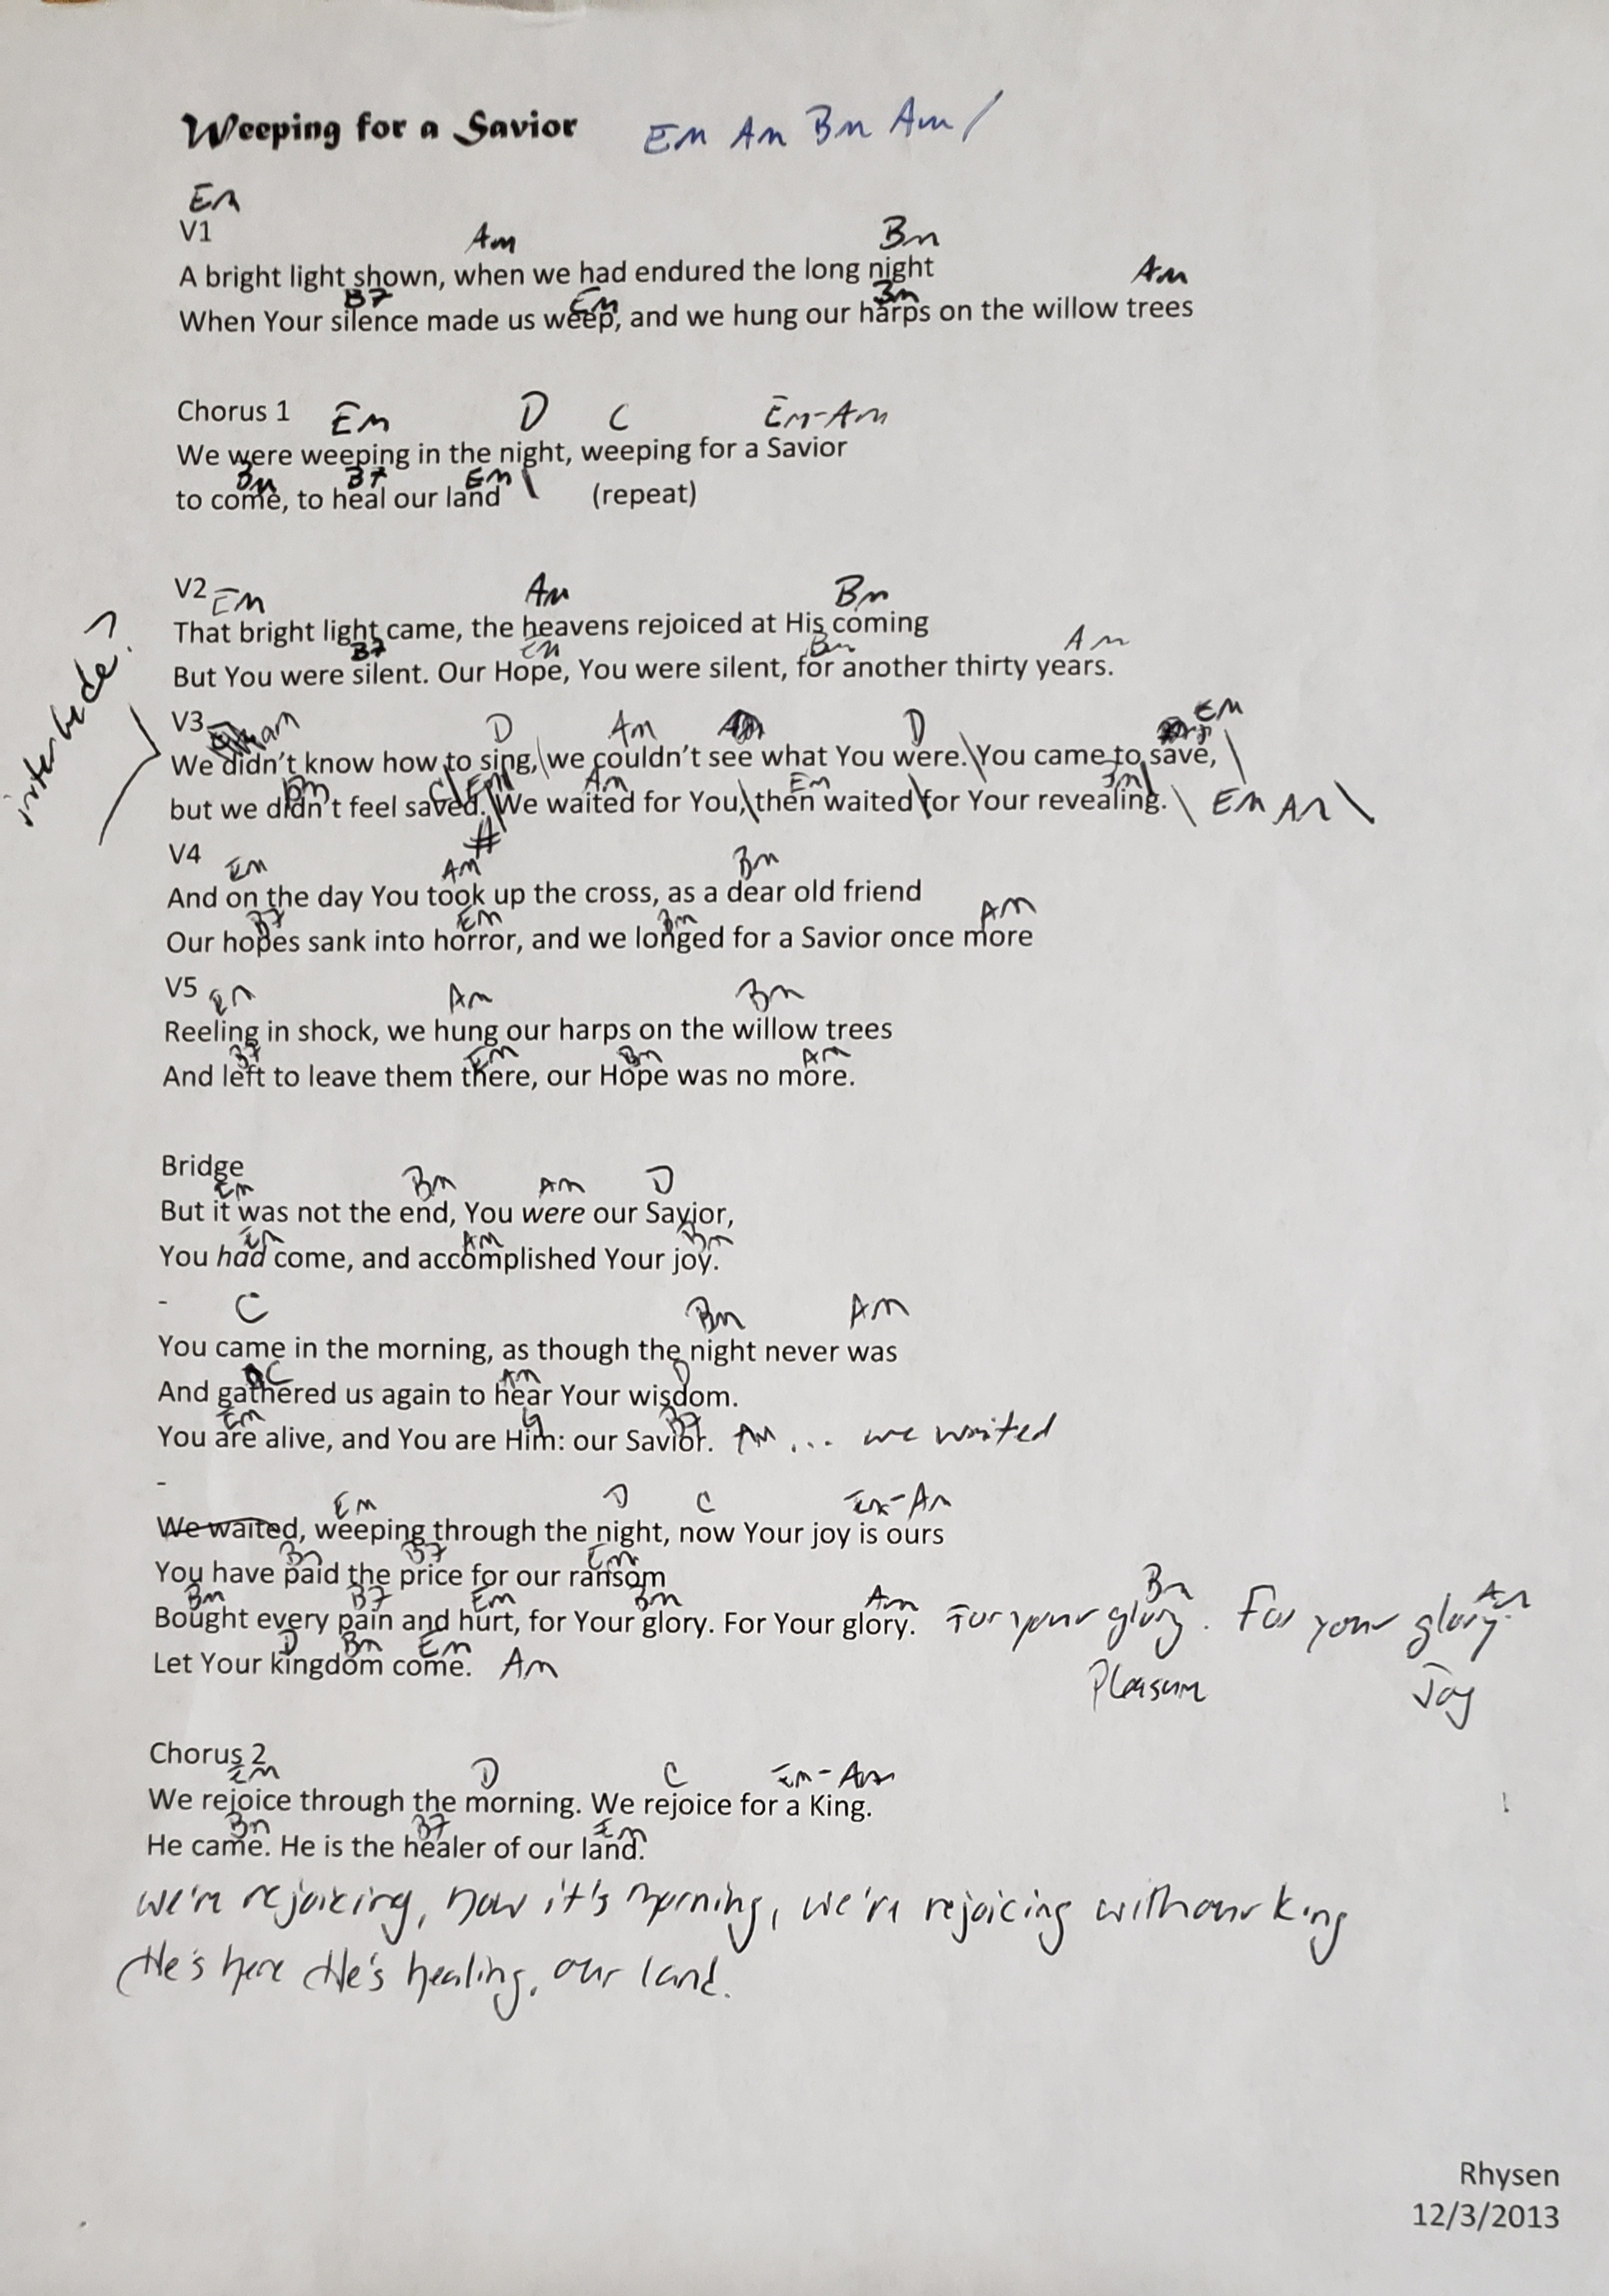 Weeping for a Savior Em Am Bm Am /
Em
V1
Am Bm
A bright light shown, when we had endured the long night
B7 Em Bm Am
When Your silence made us weep, and we hung our harps on the willow trees
Chorus 1 Em D C Em-Am
We were weeping in the night, weeping for a Savior
Bm B7 Em \
to come, to heal our land (repeat)
V2 Em Am Bm
That bright light came, the heavens rejoiced at His coming
B7 Em Bm Am
But You were silent. Our Hope, You were silent, for another thirty years.
interlude?
V3 am D Am D Em
We didn't know how to sing, \ we couldn't see what You were. \ You came to save, \
Bm C Em Am Em Bm
but we didn't feel saved. \ We waited for You, \ then waited \ for Your revealing. \ Em Am \
#
V4 Em Am Bm
And on the day You took up the cross, as a dear old friend
B7 Em Bm Am
Our hopes sank into horror, and we longed for a Savior once more
V5 Em Am Bm
Reeling in shock, we hung our harps on the willow trees
B7 Em Bm Am
And left to leave them there, our Hope was no more.
Bridge
Em Bm Am D
But it was not the end, You were our Savior,
Em Am Bm
You had come, and accomplished Your joy.
- C Bm Am
You came in the morning, as though the night never was
C Am D
And gathered us again to hear Your wisdom.
Em G B7
You are alive, and You are Him: our Savior. Am ... we waited
-
Em D C Em-Am
We waited, weeping through the night, now Your joy is ours
Bm B7 Em
You have paid the price for our ransom
Bm B7 Em Bm Am Bm Am
Bought every pain and hurt, for Your glory. For Your glory. For your glory. For your glory.
D Bm Em
Let Your kingdom come. Am Pleasure Joy
Chorus 2
Em D C Em-Am
We rejoice through the morning. We rejoice for a King.
Bm B7 Em
He came. He is the healer of our land.
we're rejoicing, now it's morning, we're rejoicing with our king
He's here He's healing, our land.
Rhysen
12/3/2013